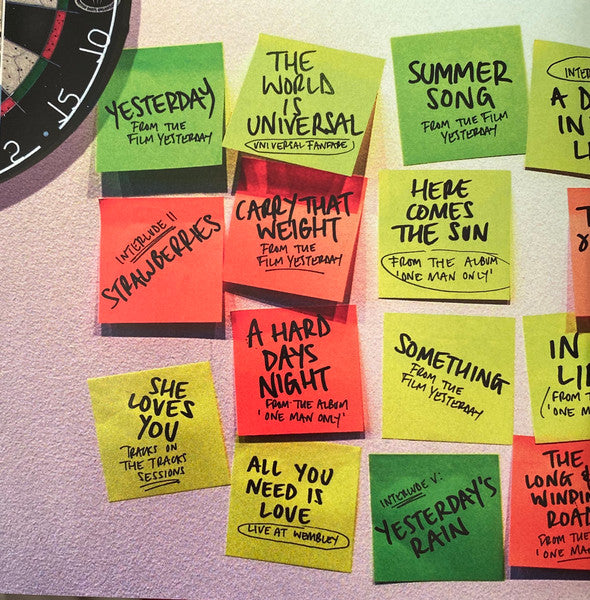 10
15
2
YESTERDAY
FROM THE
FILM YESTERDAY
THE
WORLD
IS
UNIVERSAL
UNIVERSAL FANFARE
SUMMER
SONG
FROM THE FILM
YESTERDAY
INTER
A D
IN
L
INTERLUDE II
STRAWBERRIES
CARRY THAT
WEIGHT
FROM THE
FILM YESTERDAY
HERE
COMES
THE SUN
FROM THE ALBUM
'ONE MAN ONLY'
A HARD
DAYS
NIGHT
FROM THE ALBUM
'ONE MAN ONLY'
SOMETHING
FROM THE
FILM YESTERDAY
IN
LI
(FROM T
'ONE M
SHE
LOVES
YOU
TRACKS ON
THE TRACKS
SESSIONS
ALL YOU
NEED IS
LOVE
LIVE AT WEMBLEY
INTERLUDE V:
YESTERDAY'S
RAIN
THE
LONG &
WINDIN
ROAD
FROM THE
'ONE MA